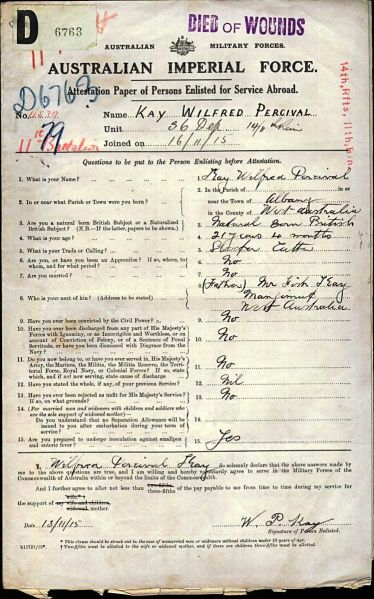 D 6763
DIED OF WOUNDS
AUSTRALIAN MILITARY FORCES.
AUSTRALIAN IMPERIAL FORCE.
Attestation Paper of Persons Enlisted for Service Abroad.
D6763
No. Name KAY WILFRED PERCIVAL
Unit 36 Dep
Joined on 16/11/15
14th Rfts, 11th Bn
79
11th Battalion
Questions to be put to the Person Enlisting before Attestation.
1. What is your Name? 1. Kay Wilfred Percival
2. In or near what Parish or Town were you born? 2. In the Parish of in or
near the Town of Albany
in the County of West Australia
3. Are you a natural born British Subject or a Naturalised
British Subject? (N.B.—If the latter, papers to be shown.) 3. Natural Born British
4. What is your age? 4. 21 years 4 months
5. What is your Trade or Calling? 5. Sleeper Cutter
6. Are you, or have you been an Apprentice? If so, where, to
whom, and for what period? 6. No
7. Are you married? 7. No
8. Who is your next of kin? (Address to be stated) 8. (Father) Mr Kay
Manjimup
West Australia
9. Have you ever been convicted by the Civil Power? 9. No
10. Have you ever been discharged from any part of His Majesty's
Forces with Ignominy, or as Incorrigible and Worthless, or on
account of Conviction of Felony, or of a Sentence of Penal
Servitude, or have you been dismissed with Disgrace from the
Navy? 10. No
11. Do you now belong to, or have you ever served in, His Majesty's
Army, the Marines, the Militia, the Militia Reserve, the Territorial
Force, Royal Navy, or Colonial Forces? If so, state
which, and if not now serving, state cause of discharge 11. No
12. Have you stated the whole, if any, of your previous Service? 12. Nil
13. Have you ever been rejected as unfit for His Majesty's Service?
If so, on what grounds? 13. No
14. (For married men and widowers with children and soldiers who
are the sole support of widowed mother)—
Do you understand that no Separation Allowance will be
issued to you after embarkation during your term of
service? 14.
15. Are you prepared to undergo inoculation against smallpox
and enteric fever? 15. Yes
I, Wilfred Percival Kay do solemnly declare that the above answers made
by me to the above questions are true, and I am willing and hereby voluntarily agree to serve in the Military Forces of the
Commonwealth of Australia within or beyond the limits of the Commonwealth.
And I further agree to allot not less than two-fifths three-fifths of the pay payable to me from time to time during my service for
the support of my wife wife and children, widowed mother.
Date 13/11/15 W. P. Kay
Signature of Person Enlisted.
* This clause should be struck out in the case of unmarried men or widowers without children under 18 years of age.
† Two-fifths must be allotted to the wife or widowed mother, and if there are children three-fifths must be allotted.